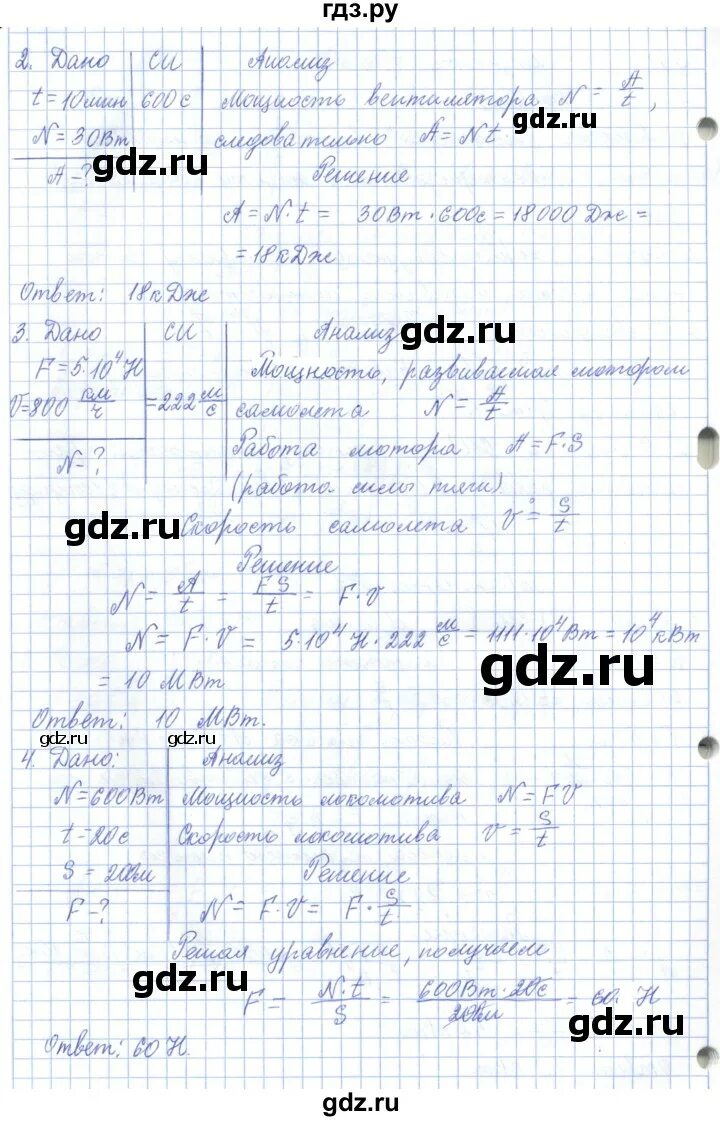 гдз.ру
2. Дано СИ Анализ
t = 10 мин 600 с Мощность вентилятора N = A/t,
N = 30 Вт следовательно A = Nt.
gdz.ru
gdz.ru
A - ? Решение
A = N·t = 30 Вт · 600 с = 18000 Дж =
= 18 кДж
Ответ: 18 кДж
3. Дано СИ Анализ
gdz.ru
F = 5·10⁴ Н Мощность, развиваемая мотором
V = 800 км/ч = 222 м/с самолета N = A/t
N - ? Работа мотора A = F·S
(работа силы тяги)
gdz.ru
Скорость самолета v = S/t
Решение
N = A/t = FS/t = F·V
N = F·V = 5·10⁴ Н · 222 м/с = 1111·10⁴ Вт = 10⁴ кВт
gdz.ru
= 10 МВт
Ответ: 10 МВт.
gdz.ru gdz.ru
4. Дано: Анализ
N = 600 Вт Мощность локомотива N = FV
t = 20 с Скорость локомотива v = S/t
S = 200 м Решение
F - ? N = F·V = F·S/t
Решая уравнение, получаем
gdz.ru
F = N·t/S = 600 Вт · 20 с/200 м = 60. Н
gdz.ru
Ответ: 60 Н.
gdz.ru